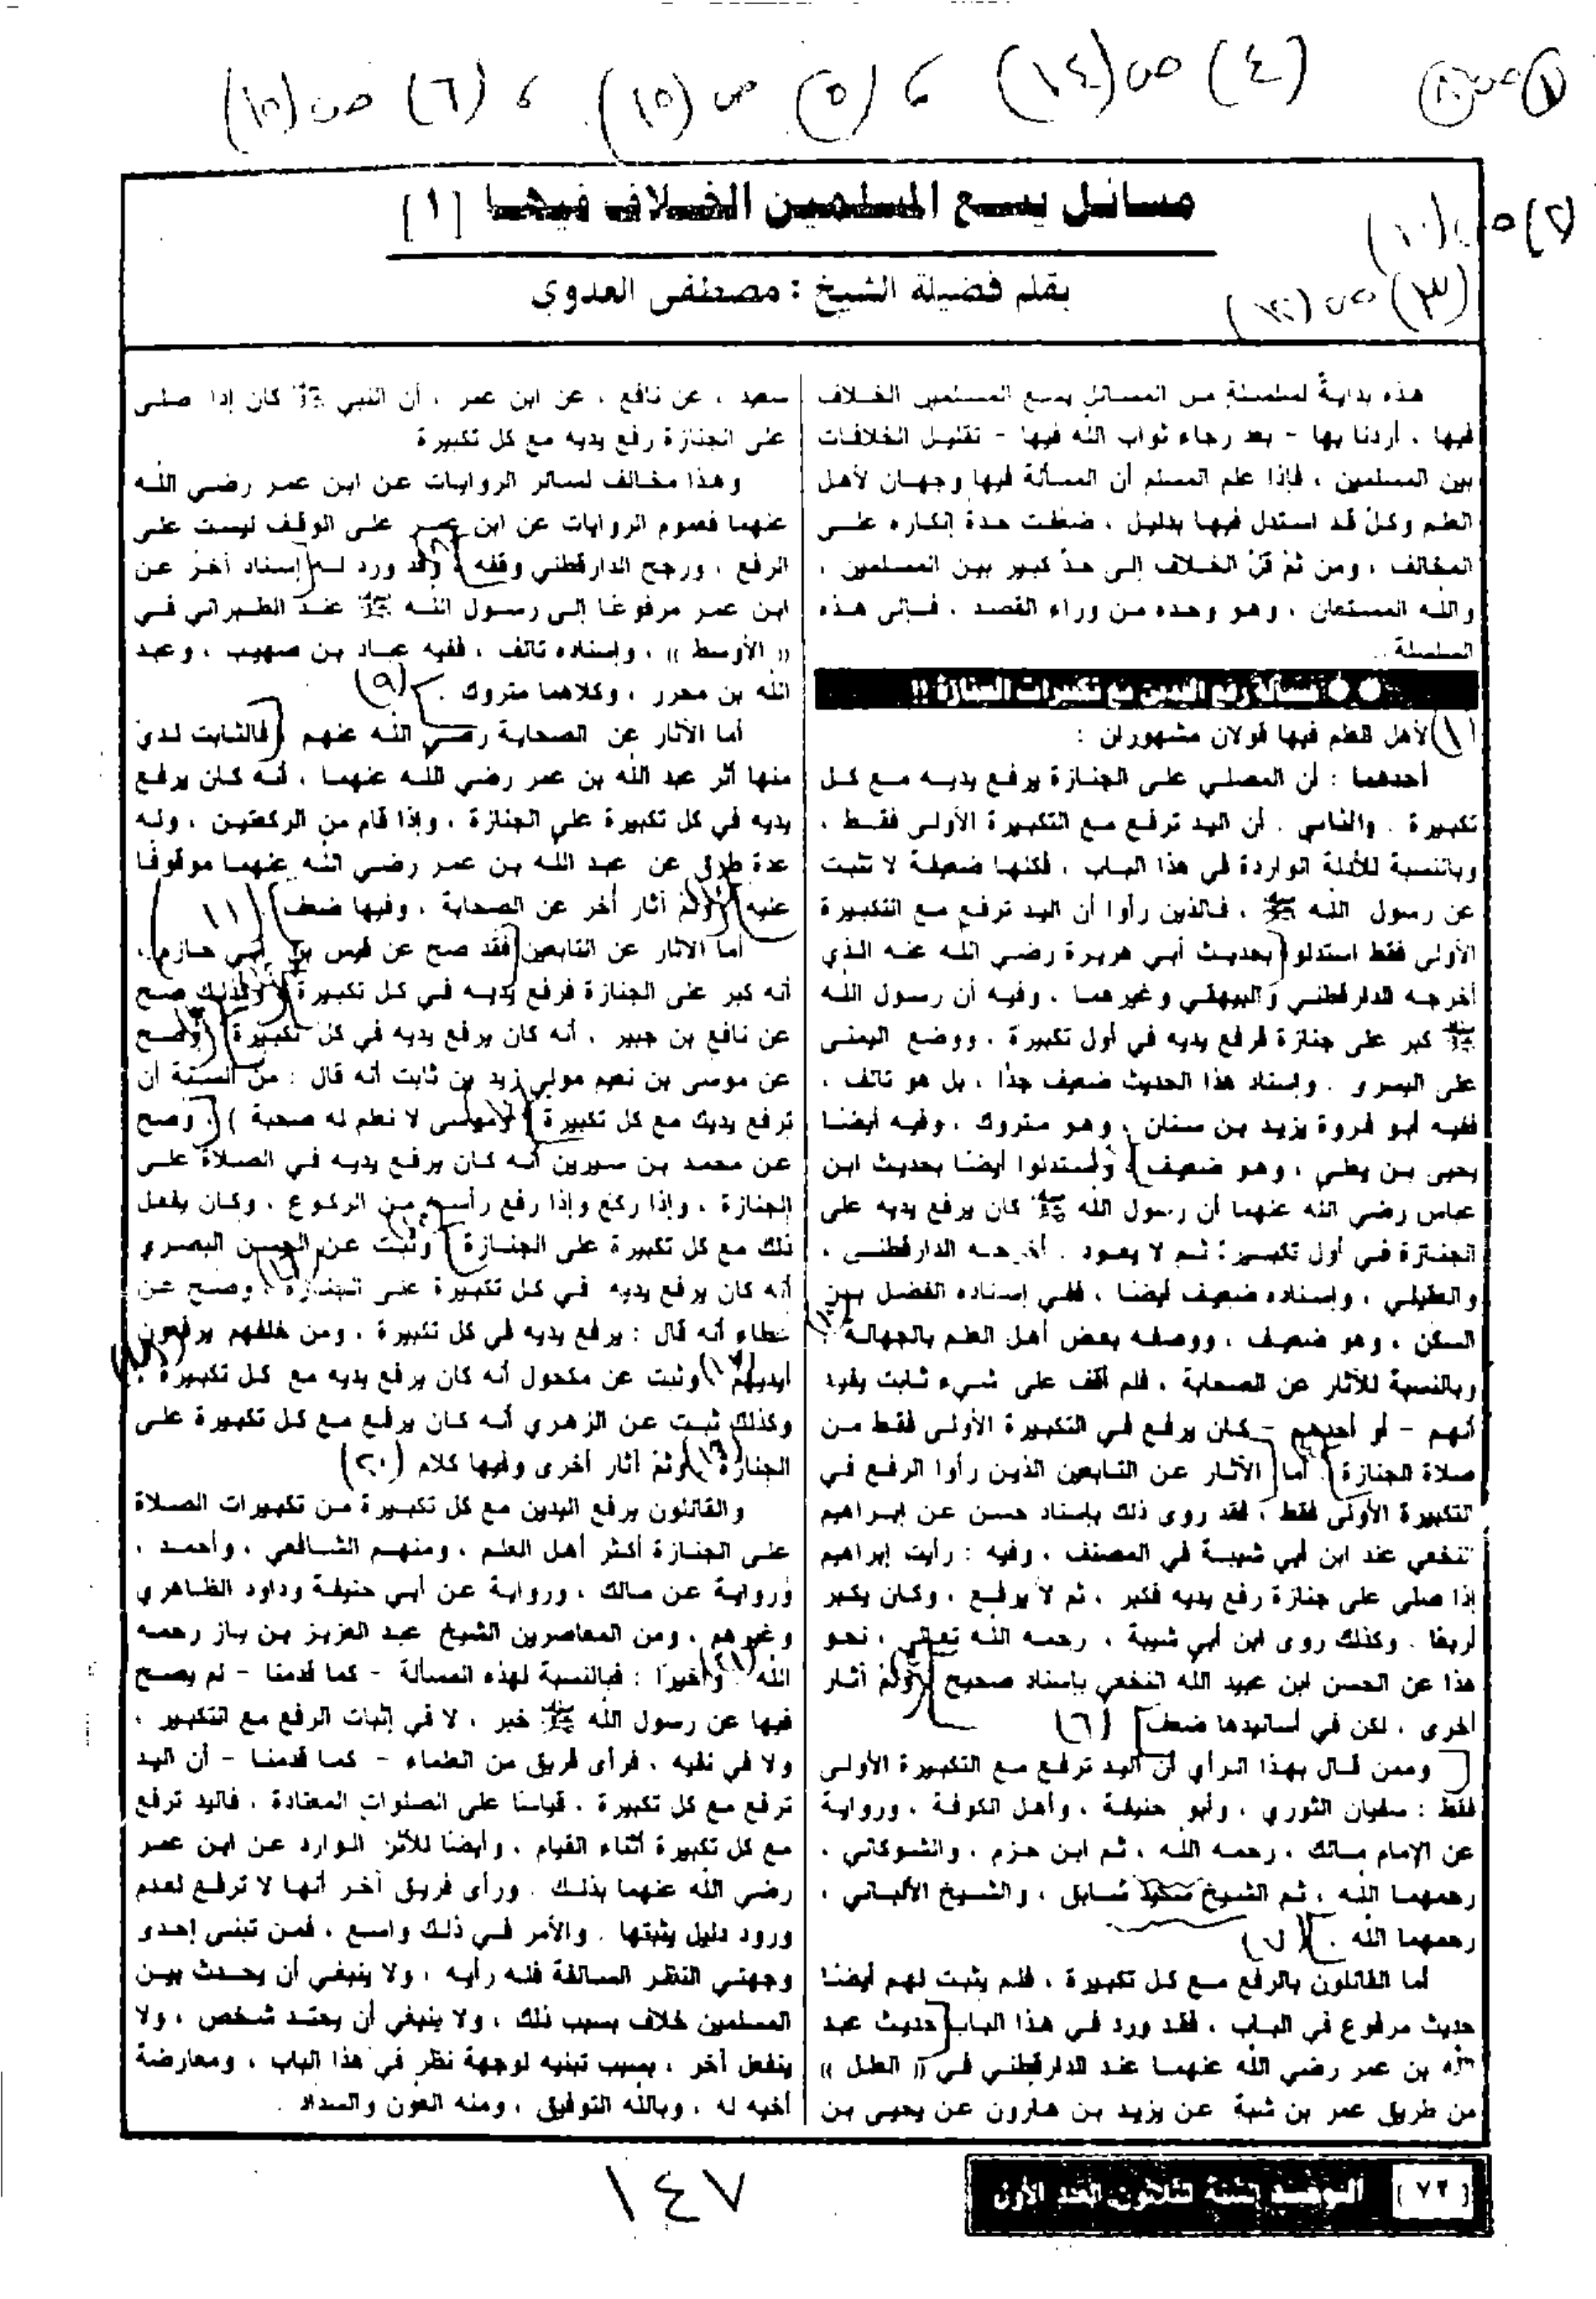 (٤) ص (١٤) ، (٥) ص (١٥) ، (٦) ص (١٥)
(٣) ص
مسائل يسع المسلمين الخلاف فيها [١]
بقلم فضيلة الشيخ : مصطفى العدوي
هذه بداية لسلسلة من المسائل يسع المسلمين الخلاف
فيها ، أردنا بها - بعد رجاء ثواب الله فيها - تقليل الخلافات
بين المسلمين ، فإذا علم المسلم أن المسألة فيها وجهان لأهل
العلم وكل قد استدل فيها بدليل ، ضعفت حدة إنكاره على
المخالف ، ومن ثم قل الخلاف إلى حد كبير بين المسلمين ،
والله المستعان ، وهو وحده من وراء القصد ، فإلى هذه
السلسلة .
●● مسألة رفع اليدين مع تكبيرات الجنازة !!
(١) لأهل العلم فيها قولان مشهوران :
أحدهما : أن المصلي على الجنازة يرفع يديه مع كل
تكبيرة . والثاني . أن اليد ترفع مع التكبيرة الأولى فقط ،
وبالنسبة للأدلة الواردة في هذا الباب ، فكلها ضعيفة لا تثبت
عن رسول الله ﷺ ، فالذين رأوا أن اليد ترفع مع التكبيرة
الأولى فقط استدلوا بحديث أبي هريرة رضي الله عنه الذي
أخرجه الدارقطني والبيهقي وغيرهما ، وفيه أن رسول الله
ﷺ كبر على جنازة فرفع يديه في أول تكبيرة ، ووضع اليمنى
على اليسرى . وإسناد هذا الحديث ضعيف جدًا ، بل هو تالف ،
ففيه أبو فروة يزيد بن سنان ، وهو متروك ، وفيه أيضًا
يحيى بن يعلى ، وهو ضعيف ، واستدلوا أيضًا بحديث ابن
عباس رضي الله عنهما أن رسول الله ﷺ كان يرفع يديه على
الجنازة في أول تكبيرة ثم لا يعود . أخرجه الدارقطني ،
والعقيلي ، وإسناده ضعيف أيضًا ، ففي إسناده الفضل بن
السكن ، وهو ضعيف ، ووصفه بعض أهل العلم بالجهالة .
وبالنسبة للآثار عن الصحابة ، فلم أقف على شيء ثابت يفيد
أنهم - أو أحدهم - كان يرفع في التكبيرة الأولى فقط من
صلاة الجنازة ، أما الآثار عن التابعين الذين رأوا الرفع في
التكبيرة الأولى فقط ، فقد روى ذلك بإسناد حسن عن إبراهيم
النخعي عند ابن أبي شيبة في المصنف ، وفيه : رأيت إبراهيم
إذا صلى على جنازة رفع يديه فكبر ، ثم لا يرفع ، وكان يكبر
أربعًا . وكذلك روى ابن أبي شيبة ، رحمه الله تعالى ، نحو
هذا عن الحسن ابن عبيد الله النخعي بإسناد صحيح ، وثَمَّ آثار
أخرى ، لكن في أسانيدها ضعف (٦)
وممن قال بهذا الرأي أن اليد ترفع مع التكبيرة الأولى
فقط : سفيان الثوري ، وأبو حنيفة ، وأهل الكوفة ، ورواية
عن الإمام مالك ، رحمه الله ، ثم ابن حزم ، والشوكاني ،
رحمهما الله ، ثم الشيخ سيد سابق ، والشيخ الألباني ،
رحمهما الله . (٧)
أما القائلون بالرفع مع كل تكبيرة ، فلم يثبت لهم أيضًا
حديث مرفوع في الباب ، فقد ورد في هذا الباب حديث عبد
الله بن عمر رضي الله عنهما عند الدارقطني في « العلل »
من طريق عمر بن شبة عن يزيد بن هارون عن يحيى بن
سعيد ، عن نافع ، عن ابن عمر ، أن النبي ﷺ كان إذا صلى
على الجنازة رفع يديه مع كل تكبيرة
وهذا مخالف لسائر الروايات عن ابن عمر رضي الله
عنهما فعموم الروايات عن ابن عمر على الوقف ليست على
الرفع ، ورجح الدارقطني وقفه ، وقد ورد له إسناد آخر عن
ابن عمر مرفوعًا إلى رسول الله ﷺ عند الطبراني في
« الأوسط » ، وإسناده تالف ، ففيه عباد بن صهيب ، وعبد
الله بن محرر ، وكلاهما متروك . (٩)
أما الآثار عن الصحابة رضي الله عنهم فالثابت لدي
منها أثر عبد الله بن عمر رضي الله عنهما ، أنه كان يرفع
يديه في كل تكبيرة على الجنازة ، وإذا قام من الركعتين ، وله
عدة طرق عن عبد الله بن عمر رضي الله عنهما موقوفًا
عليه ، وثَمَّ آثار أخر عن الصحابة ، وفيها ضعف . ١١
أما الآثار عن التابعين فقد صح عن قيس بن أبي حازم ،
أنه كبر على الجنازة فرفع يديه في كل تكبيرة ، وكذلك صح
عن نافع بن جبير ، أنه كان يرفع يديه في كل تكبيرة ، وصح
عن موسى بن نعيم مولى زيد بن ثابت أنه قال : من السنة أن
ترفع يديك مع كل تكبيرة ( وموسى لا نعلم له صحبة ) ، وصح
عن محمد بن سيرين أنه كان يرفع يديه في الصلاة على
الجنازة ، وإذا ركع وإذا رفع رأسه من الركوع ، وكان يفعل
ذلك مع كل تكبيرة على الجنازة ، وثبت عن الحسن البصري
أنه كان يرفع يديه في كل تكبيرة على الجنازة ، وصح عن
عطاء أنه قال : يرفع يديه في كل تكبيرة ، ومن خلفهم يرفعون
أيديهم ، وثبت عن مكحول أنه كان يرفع يديه مع كل تكبيرة ،
وكذلك ثبت عن الزهري أنه كان يرفع مع كل تكبيرة على
الجنازة ، وثَمَّ آثار أخرى وفيها كلام (٢٠)
والقائلون برفع اليدين مع كل تكبيرة من تكبيرات الصلاة
على الجنازة أكثر أهل العلم ، ومنهم الشافعي ، وأحمد ،
ورواية عن مالك ، ورواية عن أبي حنيفة وداود الظاهري
وغيرهم ، ومن المعاصرين الشيخ عبد العزيز بن باز رحمه
الله . وأخيرًا : فبالنسبة لهذه المسألة - كما قدمنا - لم يصح
فيها عن رسول الله ﷺ خبر ، لا في إثبات الرفع مع التكبير ،
ولا في نفيه ، فرأى فريق من العلماء - كما قدمنا - أن اليد
ترفع مع كل تكبيرة ، قياسًا على الصلوات المعتادة ، فاليد ترفع
مع كل تكبيرة أثناء القيام ، وأيضًا للأثر الوارد عن ابن عمر
رضي الله عنهما بذلك . ورأى فريق آخر أنها لا ترفع لعدم
ورود دليل يثبتها . والأمر في ذلك واسع ، فمن تبنى إحدى
وجهتي النظر السالفة فله رأيه ، ولا ينبغي أن يحدث بين
المسلمين خلاف بسبب ذلك ، ولا ينبغي أن يحتد شخص ، ولا
ينفعل آخر ، بسبب تبنيه لوجهة نظر في هذا الباب ، ومعارضة
أخيه له ، وبالله التوفيق ، ومنه العون والسداد .
[٧٢] التوحيد السنة الثلاثون العدد الأول
١٤٧